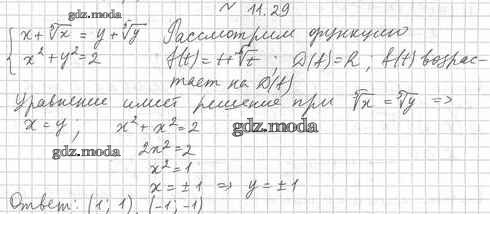 № 11.29
gdz.moda
x + ⁵√x = y + ⁵√y Рассмотрим функцию
x² + y² = 2 f(t) = t + ⁵√t ; D(f) = R ; f(t) возрас-
тает на D(f)
Уравнение имеет решение при ⁵√x = ⁵√y =>
x = y ; x² + x² = 2 gdz.moda
gdz.moda 2x² = 2
x² = 1
x = ± 1 => y = ± 1
Ответ: (1; 1), (-1; -1)